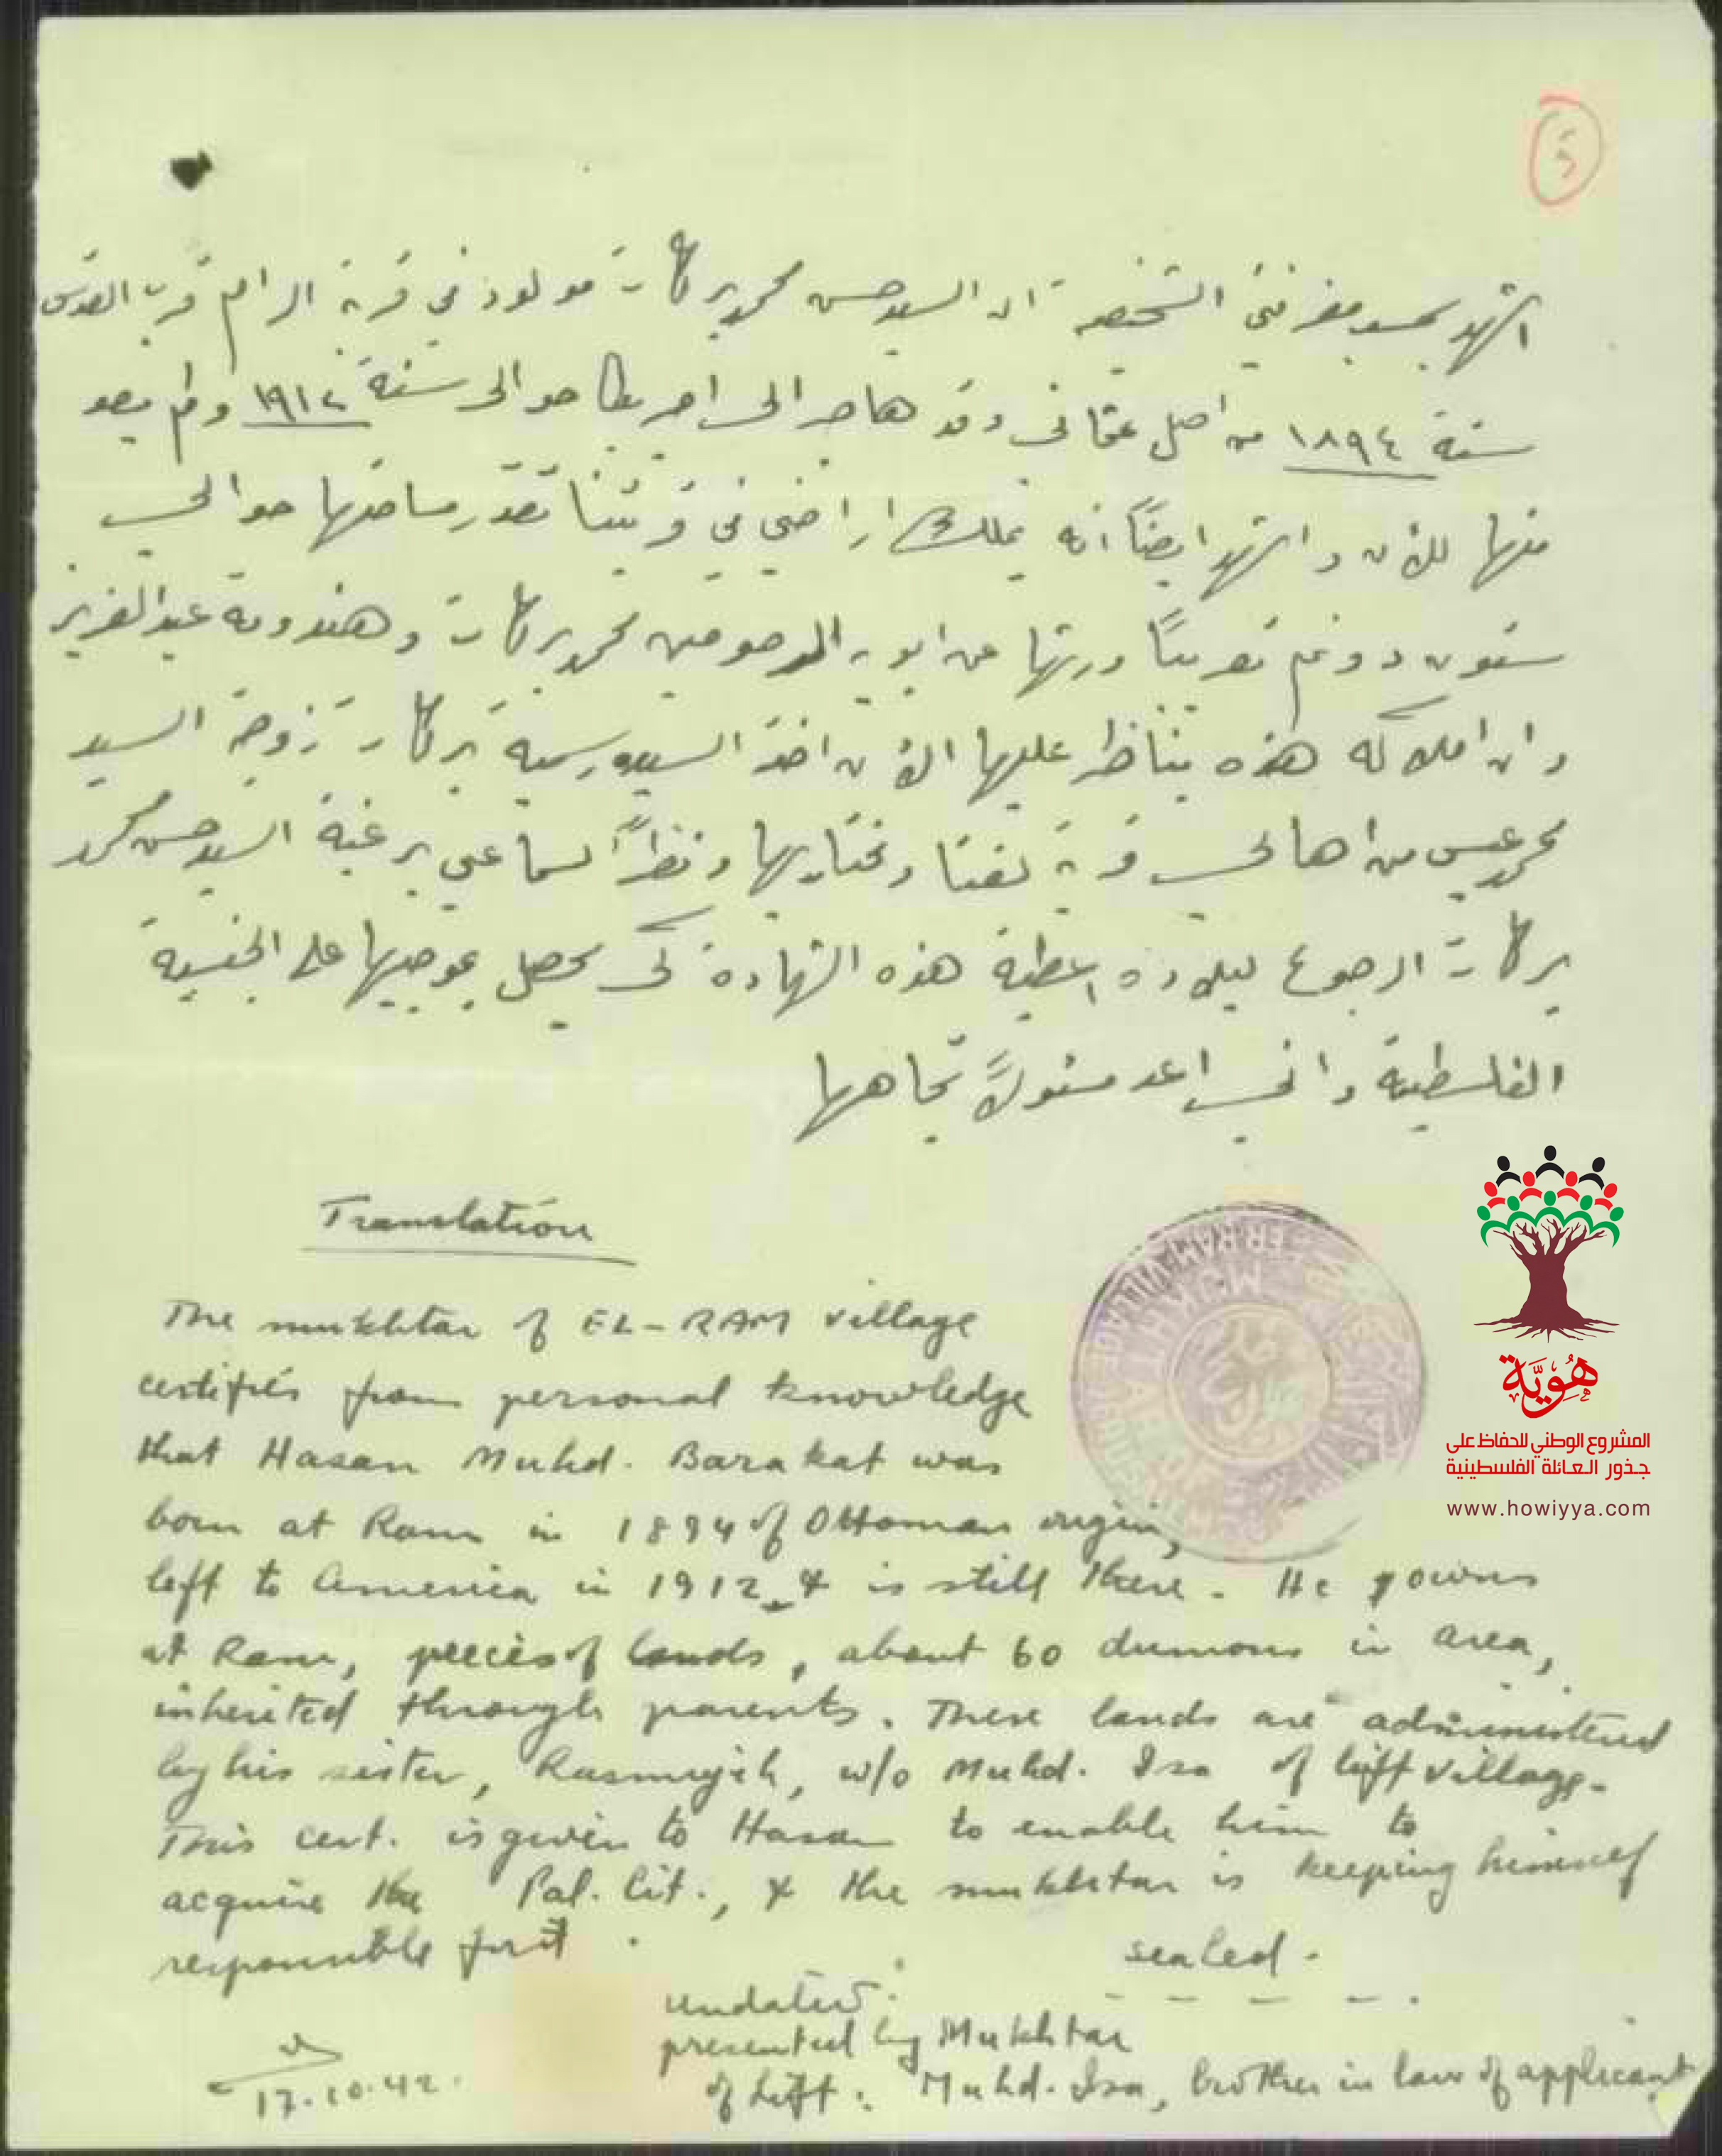 اشهد بحسب معرفتي الشخصية ان السيد حسن محمد بركات مولود في قرية الرام قرب القدس
سنة ١٨٩٤ من اصل عثماني وقد هاجر الى امريكا حوالى سنة ١٩١٢ ولم يعد
منها للأن واشهد ايضاً انه يملك اراضي في قريتنا تقدر مساحتها حوالي
ستون دونم تقريباً ورثها عن ابويه المرحومين محمد بركات وهندومة عبد العزيز
وان املاكه هذه يناظر عليها الأن اخته السيدة رسمية بركات زوجة السيد
محمد عيسى من اهالي قرية لفتا ومختاريها ونظراً لسماعي برغبة السيد حسن محمد
بركات الرجوع لبلاده اعطيه هذه الشهادة لكي يحصل بموجبها على الجنسية
الفلسطينية واني اعد مسئولاً تجاهها
Translation
The mukhtar of EL-RAM village
certifies from personal knowledge
that Hasan Muhd. Barakat was
born at Ram in 1894 of Ottoman origin,
left to America in 1912 & is still there. He owns
at Ram, pieces of lands, about 60 dunums in area,
inherited through parents. These lands are administered
by his sister, Rasmiyeh, w/o Muhd. Isa of Lift village.
This cert. is given to Hasan to enable him to
acquire the Pal. Cit., & the mukhtar is keeping himself
responsible for it.
sealed.
undated.
presented by Mukhtar
of Lift: Muhd. Isa, brother in law of applicant
17.10.42.
هُوِيَّة
المشروع الوطني للحفاظ على
جذور العائلة الفلسطينية
www.howiyya.com